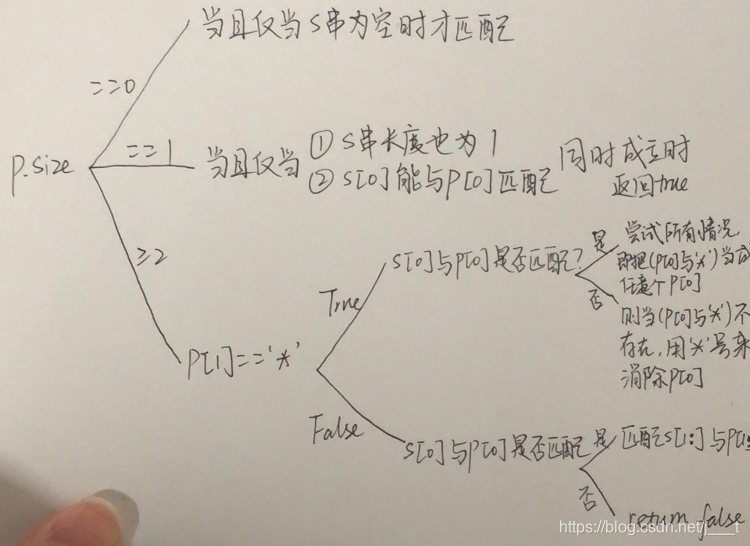 当且仅当S串为空时才匹配
==0
P.size
==1
当且仅当
① S串长度也为1
② S[0]能与P[0]匹配
同时成立时
返回true
≥2
P[1]=='*'
True
S[0]与P[0]是否匹配?
是
尝试所有情况,
即把(P[0]与'*')当成
任意个P[0]
否
则当(P[0]与'*')不
存在,用'*'号来
消除P[0]
False
S[0]与P[0]是否匹配
是
匹配S[1:]与P[1:
否
return false
https://blog.csdn.net/j___t